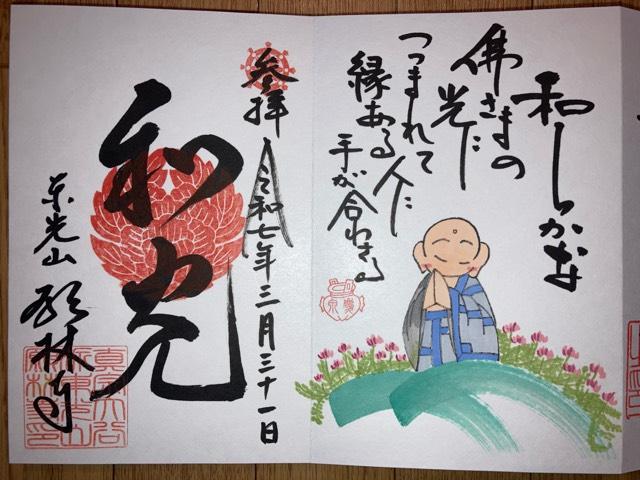 和しかな
佛さまの
光に
つつまれて
縁ある人に
手が合わさる
参拝
令和七年三月三十一日
和光
栄光山
林寺